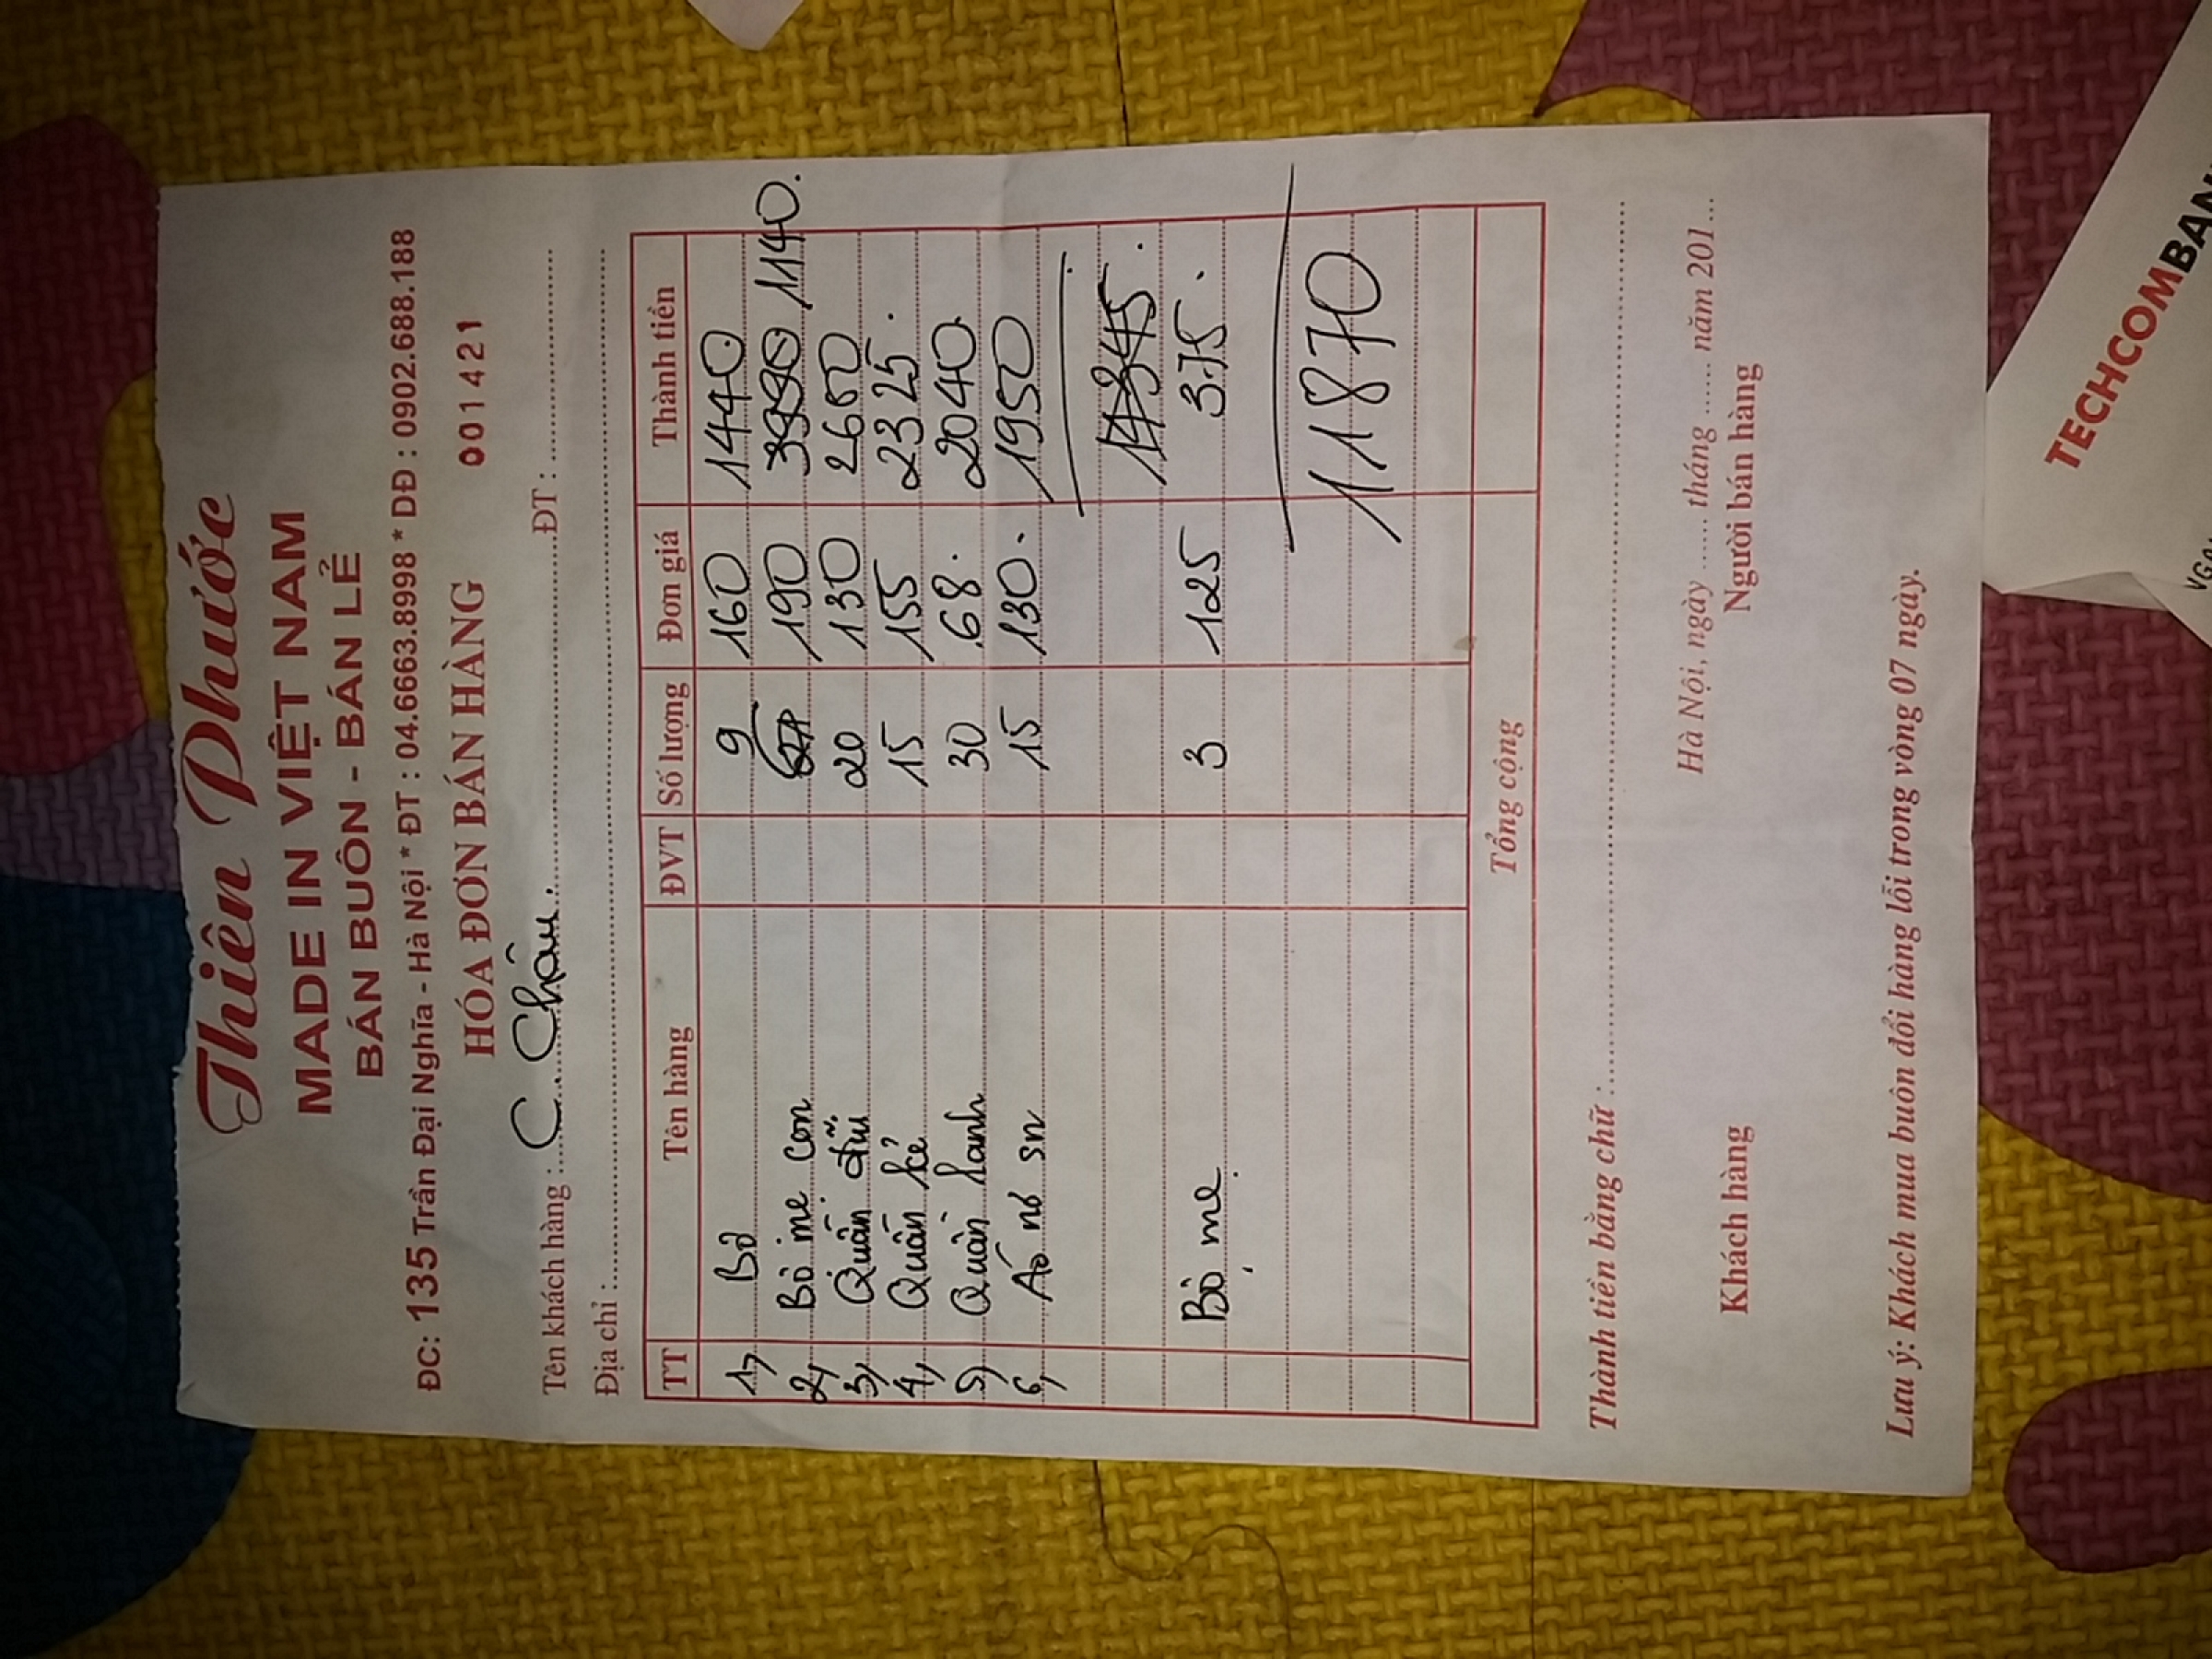 Thiên Phước
MADE IN VIỆT NAM
BÁN BUÔN - BÁN LẺ
ĐC: 135 Trần Đại Nghĩa - Hà Nội * ĐT : 04.6663.8998 * DĐ : 0902.688.188
HÓA ĐƠN BÁN HÀNG 001421
Tên khách hàng : C. Châu. ĐT :
Địa chỉ :
TT Tên hàng ĐVT Số lượng Đơn giá Thành tiền
1, Bò 9 160 1440
2, Bò mẹ con 190 1140
3, Quần đũi 20 130 2600
4, Quần kẻ 15 155 2325
5, Quần lanh 30 68 2040
6, Áo nơ sn 15 130 1950
Bò mẹ 3 125 375
11870
Tổng cộng
Thành tiền bằng chữ :
Hà Nội, ngày ..... tháng ...... năm 201...
Khách hàng Người bán hàng
Lưu ý: Khách mua buôn đổi hàng lỗi trong vòng 07 ngày.
TECHCOMBAN